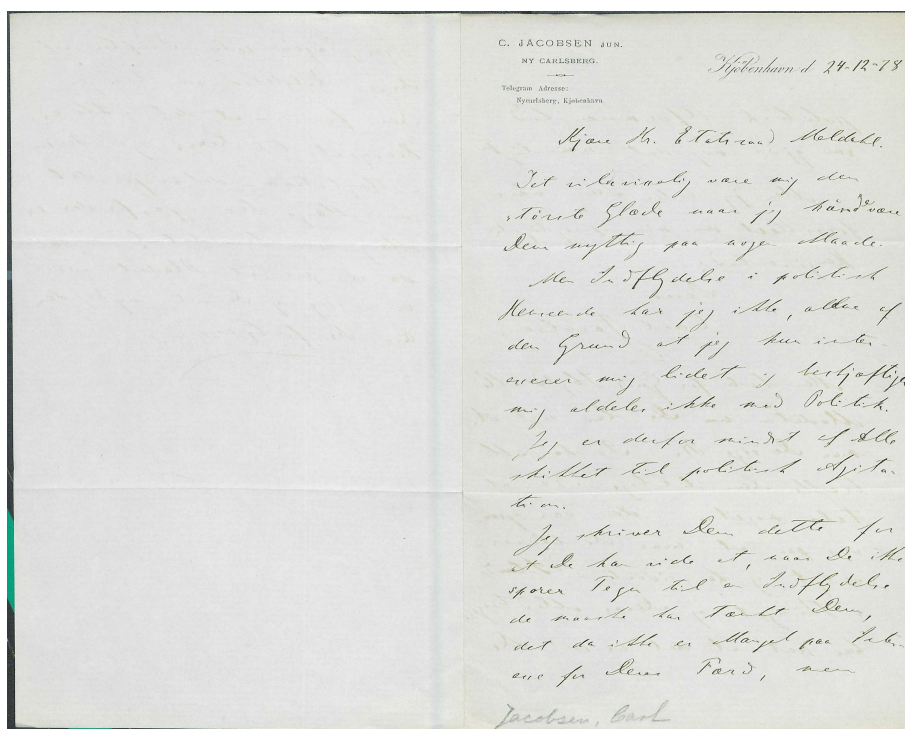 C. JACOBSEN JUN.
NY CARLSBERG.
Telegram Adresse:
Nycarlsberg, Kjøbenhavn.
Kjøbenhavn d. 24-12-78
Kjære Hr. Etatsraad Meldahl.
Det vil være mig den
største Glæde naar jeg kan være
Dem nyttig paa nogen Maade.
Men Indflydelse i politisk
Henseende har jeg ikke, allene af
den Grund at jeg kun inter-
esserer mig lidet og beskjæftiger
mig aldeles ikke med Politik.
Jeg er derfor mindst af Alle
skikket til politisk Agita-
tion.
Jeg skriver Dem dette for
at De kan vide at, naar De ikke
sporer Tegn til en Indflydelse
de maaske har tænkt Dem,
det da ikke er Mangel paa Inter-
esse for Deres Færd, men
Jacobsen, Carl